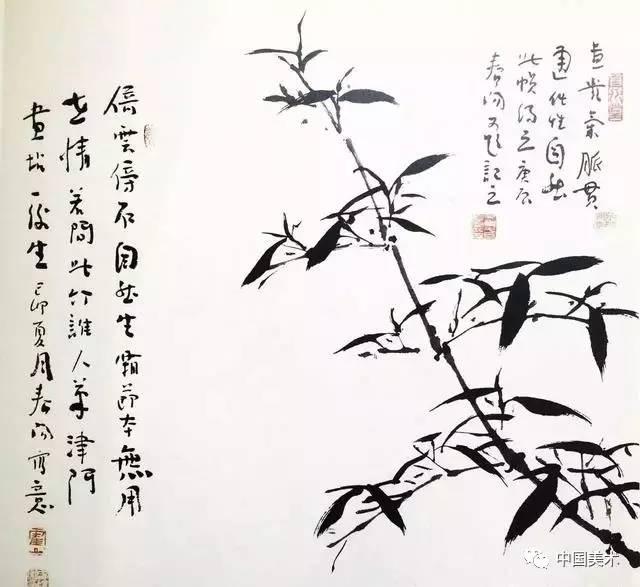 畫貴氣脈貫
通任性自然
此幀得之庚辰
春陽又題記之
倚雲傍石自然生霜節本無用
世情若問此竹誰人筆津門
畫壇一後生己卯夏月春陽寫意
中国美术